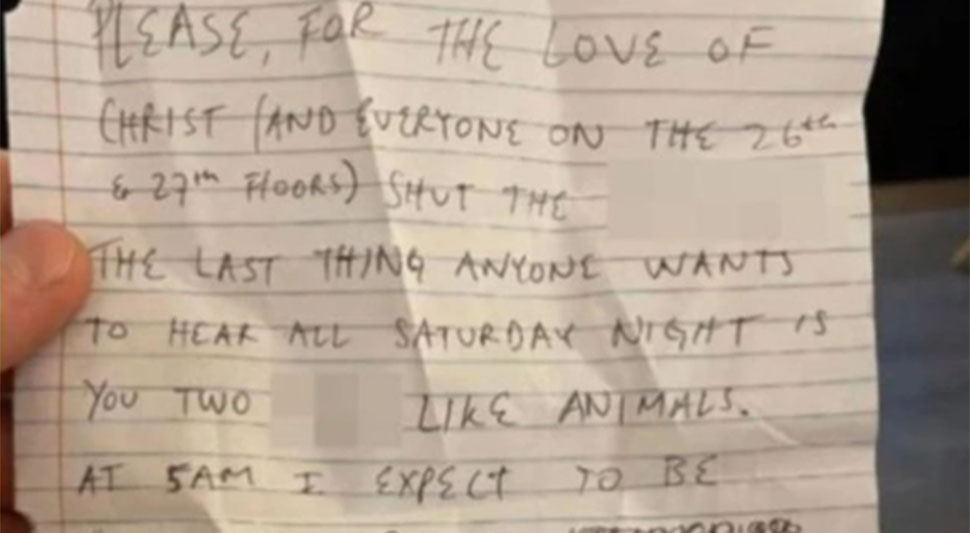 PLEASE, FOR THE LOVE OF
CHRIST (AND EVERYONE ON THE 26th
& 27th FlOORS) SHUT THE
THE LAST THING ANYONE WANTS
TO HEAR ALL SATURDAY NIGHT IS
YOU TWO LIKE ANIMALS.
AT 5AM I EXPECT TO BE